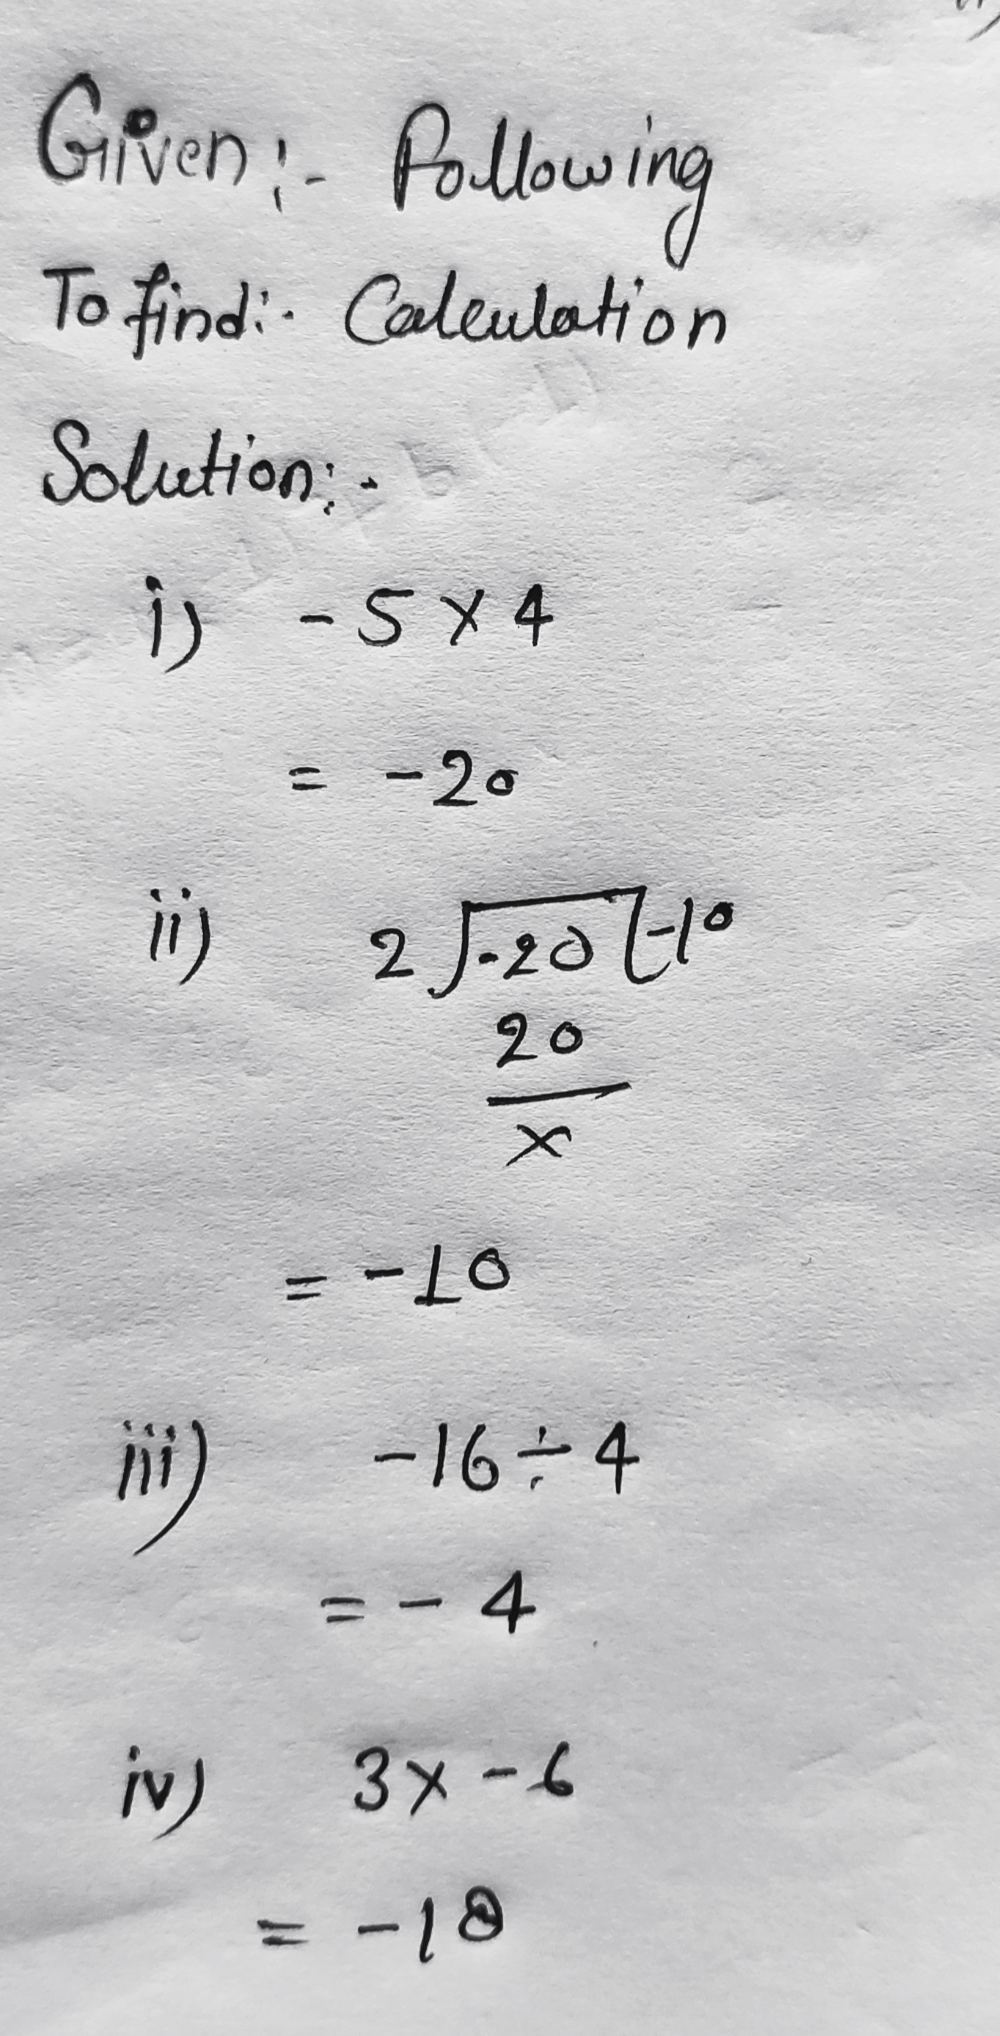 Given:- Following
To find:- Calculation
Solution:-
i) -5 × 4
= -20
ii) 2 ) -20 ( -10
20
×
= -10
iii) -16 ÷ 4
= - 4
iv) 3 × -6
= -18